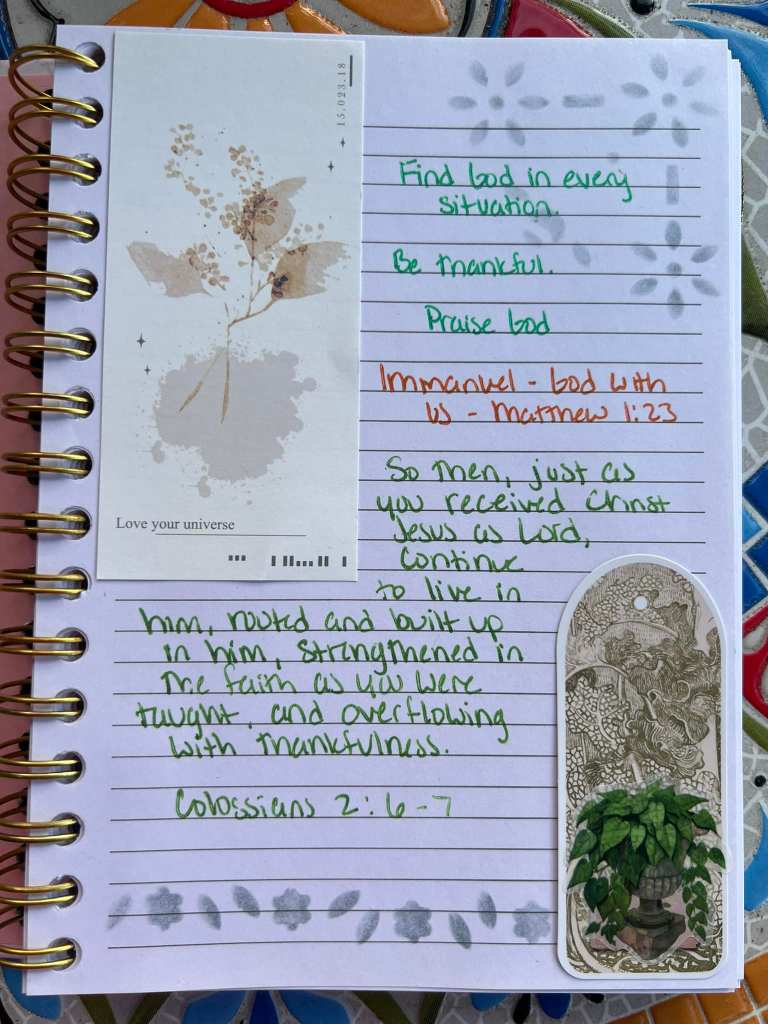 15.023.18
Find God in every
situation.
Be thankful.
Praise God
Immanuel - God with
us - Matthew 1:23
So then, just as
you received Christ
Jesus as Lord,
continue
to live in
him, rooted and built up
in him, strengthened in
the faith as you were
taught, and overflowing
with thankfulness.
Colossians 2:6-7
Love your universe